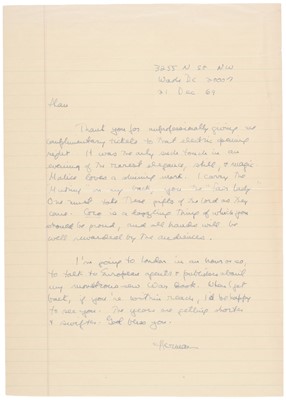 3255 N St. NW
Wash DC 20007
31 Dec 69
Alan
Thank you for unprofessionally giving us
complimentary tickets to that electric opening
night. It was the
evening of the rarest elegance, skill, & magic
work. I carry the
in my mind, you the Fair Lady
One must take these gifts of the Lord as they
come. Coco is a bewitching thing of which you
should be proud, and all hands will be
well rewarded by the audiences.
I'm going to London in an hour or so,
to talk to European agents & publishers about
my monstrous new War Book. When I get
back, if you're within reach, I'd be happy
to see you. The years are getting shorter
& swifter. God bless you.
Herman